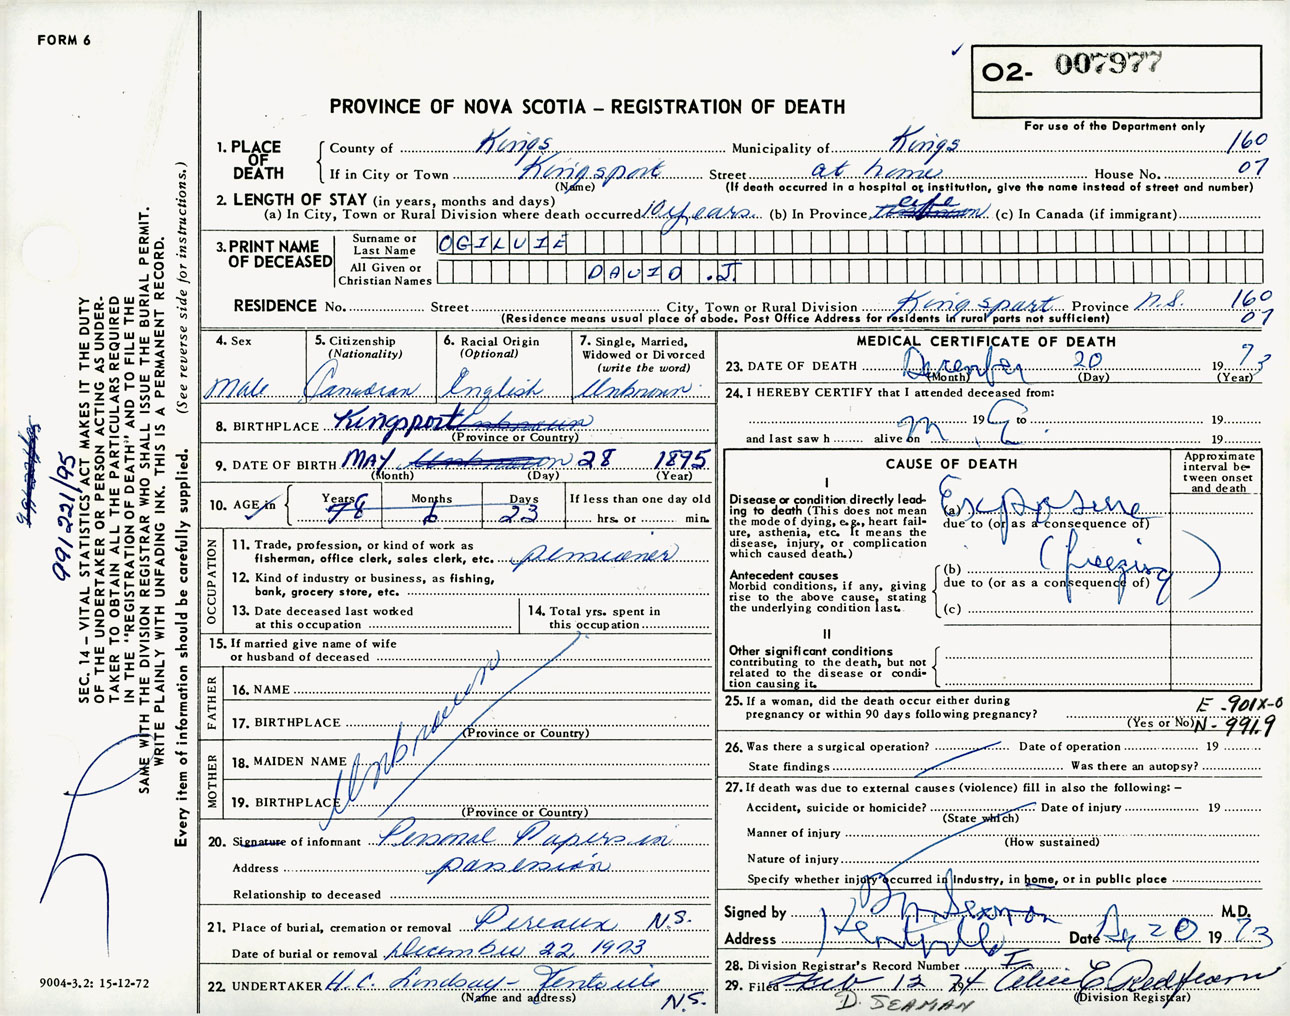 FORM 6
O2- 007977
For use of the Department only
PROVINCE OF NOVA SCOTIA – REGISTRATION OF DEATH
1. PLACE OF DEATH
County of Kings Municipality of Kings 160
If in City or Town Kingsport Street at home House No. 07
(Name) (If death occurred in a hospital or institution, give the name instead of street and number)
2. LENGTH OF STAY (in years, months and days)
(a) In City, Town or Rural Division where death occurred 10 years. (b) In Province life (c) In Canada (if immigrant)
3. PRINT NAME OF DECEASED
Surname or Last Name OGILVIE
All Given or Christian Names DAVID .J.
RESIDENCE No. Street City, Town or Rural Division Kingsport Province N.S. 160
07
(Residence means usual place of abode. Post Office Address for residents in rural parts not sufficient)
4. Sex
Male
5. Citizenship
(Nationality)
Canadian
6. Racial Origin
(Optional)
English
7. Single, Married, Widowed or Divorced
(write the word)
Unknown
8. BIRTHPLACE Kingsport Unknown
(Province or Country)
9. DATE OF BIRTH MAY Unknown 28 1895
(Month) (Day) (Year)
10. AGE in
Years Months Days If less than one day old
78 6 23 hrs. or min.
OCCUPATION
11. Trade, profession, or kind of work as
fisherman, office clerk, sales clerk, etc. pensioner
12. Kind of industry or business, as fishing,
bank, grocery store, etc.
13. Date deceased last worked
at this occupation
14. Total yrs. spent in
this occupation
15. If married give name of wife
or husband of deceased
FATHER
16. NAME
17. BIRTHPLACE
(Province or Country)
MOTHER
18. MAIDEN NAME
19. BIRTHPLACE
(Province or Country)
Unknown
20. Signature of informant Personal Papers in
Address possession
Relationship to deceased
21. Place of burial, cremation or removal Pereaux N.S.
Date of burial or removal December 22 1973
22. UNDERTAKER H.C. Lindsay -
(Name and address) N.S.
MEDICAL CERTIFICATE OF DEATH
23. DATE OF DEATH December 20 1973
(Month) (Day) (Year)
24. I HEREBY CERTIFY that I attended deceased from:
19 to 19
and last saw h alive on 19
M E
CAUSE OF DEATH
Approximate interval between onset and death
I
Disease or condition directly leading to death (This does not mean the mode of dying, e.g., heart failure, asthenia, etc. It means the disease, injury, or complication which caused death.)
(a) Exposure
due to (or as a consequence of)
Antecedent causes
Morbid conditions, if any, giving rise to the above cause, stating the underlying condition last.
(b) (freezing)
due to (or as a consequence of)
(c)
II
Other significant conditions
contributing to the death, but not related to the disease or condition causing it.
25. If a woman, did the death occur either during
pregnancy or within 90 days following pregnancy?
(Yes or No)
E -901X-0
N-991.9
26. Was there a surgical operation? Date of operation 19
State findings Was there an autopsy?
27. If death was due to external causes (violence) fill in also the following: –
Accident, suicide or homicide? Date of injury 19
(State which)
Manner of injury
(How sustained)
Nature of injury
Specify whether injury occurred in Industry, in home, or in public place
Signed by M.D.
Address Kentville Date 20 1973
28. Division Registrar's Record Number
29. Filed Feb 12 1974
(Division Registrar)
D. SEAMAN
991 221/95
SEC. 14 – VITAL STATISTICS ACT MAKES IT THE DUTY
OF THE UNDERTAKER OR PERSON ACTING AS UNDER-
TAKER TO OBTAIN ALL THE PARTICULARS REQUIRED
IN THE "REGISTRATION OF DEATH" AND TO FILE THE
SAME WITH THE DIVISION REGISTRAR WHO SHALL ISSUE THE BURIAL PERMIT.
WRITE PLAINLY WITH UNFADING INK. THIS IS A PERMANENT RECORD.
Every item of information should be carefully supplied. (See reverse side for instructions.)
9004-3.2: 15-12-72